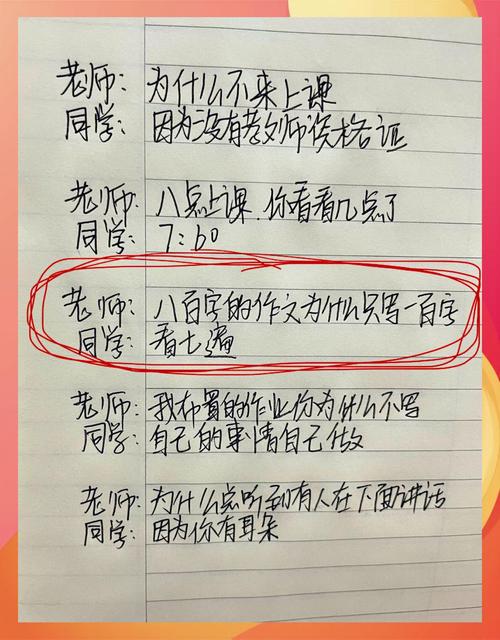 老师: 为什么不来上课
同学: 因为没有教师资格证
老师: 八点上课.你看看几点了
同学: 7:60
老师: 八百字的作文为什么只写一百字
同学: 看七遍
老师: 我布置的作业你为什么不写
同学: 自己的事情自己做
老师: 为什么总听到有人在下面讲话
同学: 因为你有耳朵